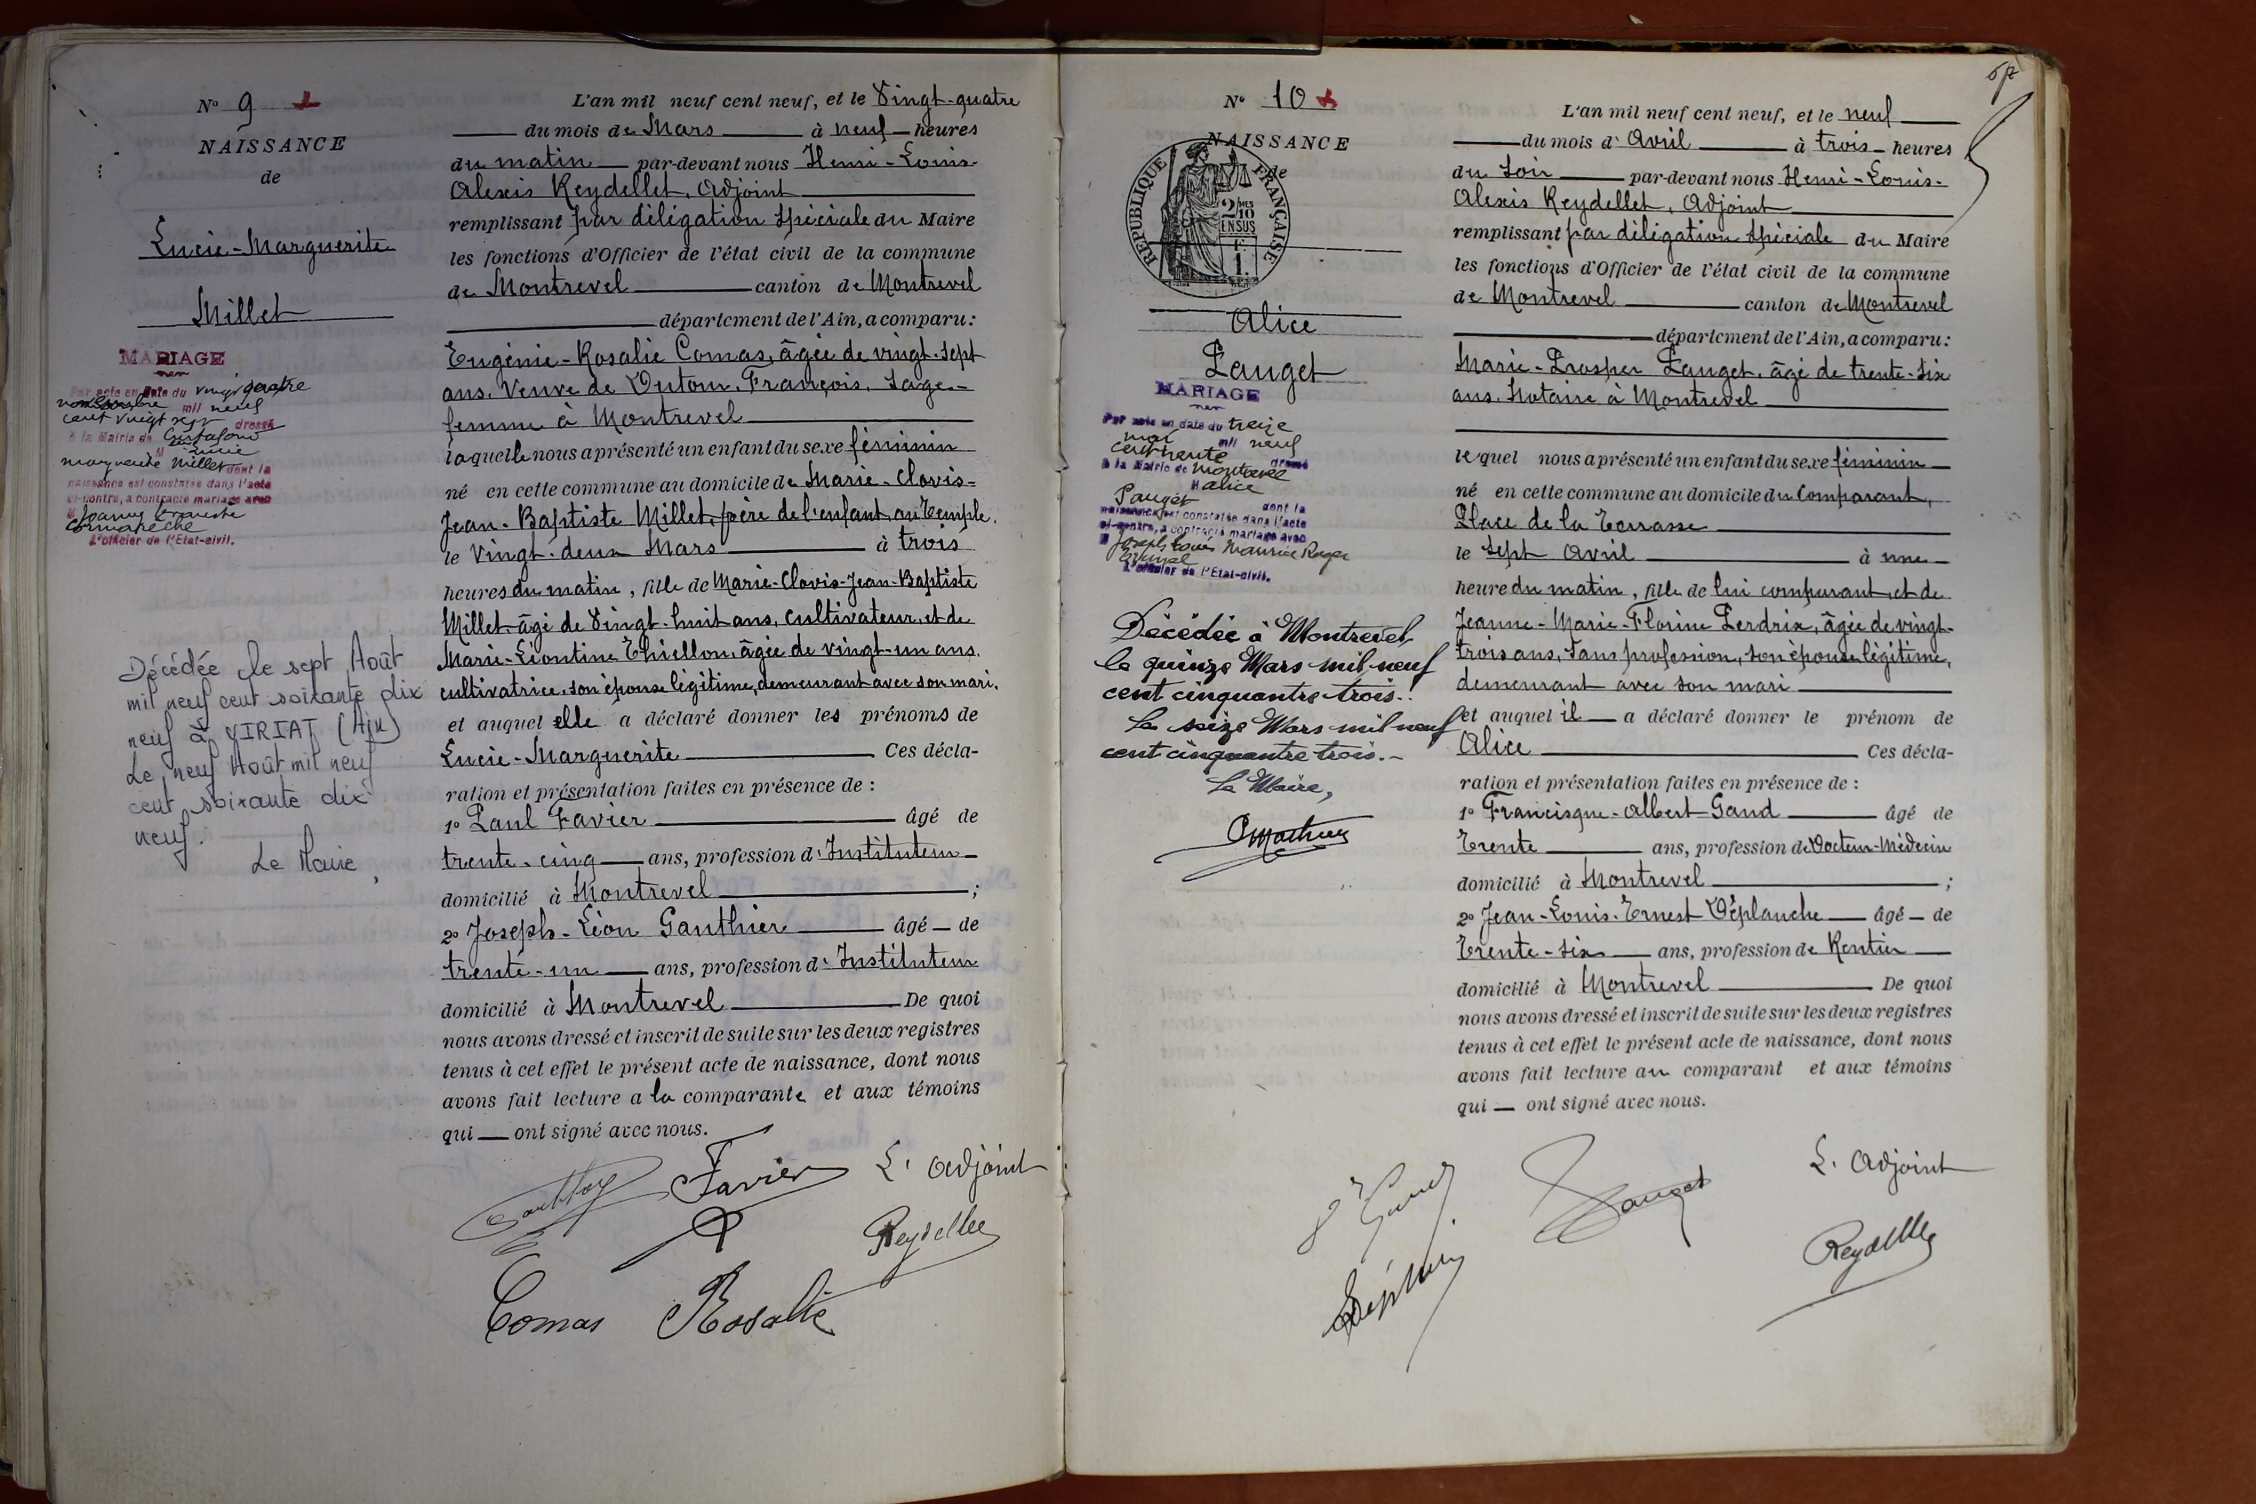 N° 9
NAISSANCE
de
Lucie-Marguerite
Millet
MARIAGE
Par acte en date du vingt quatre
novembre mil neuf
cent vingt sept dressé
à la Mairie de
M Lucie
marguerite Millet dont la
naissance est constatée dans l'acte
ci-contre, a contracté mariage avec
M Joanny
Cormarèche
L'officier de l'Etat-civil.
Décédée le sept Août
mil neuf cent soixante dix
neuf à VIRIAT (Ain)
Le neuf Août mil neuf
cent soixante dix
neuf.
Le Maire,
L'an mil neuf cent neuf, et le Vingt-quatre
du mois de Mars à neuf heures
du matin par-devant nous Henri-Louis-
Alexis Reydellet, Adjoint
remplissant par déligation spéciale du Maire
les fonctions d'Officier de l'état civil de la commune
de Montrevel canton de Montrevel
département de l'Ain, a comparu:
Eugénie-Rosalie Comas, âgée de vingt-sept
ans, Veuve de Dutour, François, Sage-
femme à Montrevel
laquelle nous a présenté un enfant du sexe féminin
né en cette commune au domicile de Marie-Clovis-
Jean-Baptiste Millet, père de l'enfant, au Temple.
le Vingt-deux Mars à trois
heures du matin, fille de Marie-Clovis-Jean-Baptiste
Millet, âgé de Vingt-huit ans, cultivateur, et de
Marie-Léontine Thiellon, âgée de vingt-un ans,
cultivatrice, son épouse légitime, demeurant avec son mari.
et auquel elle a déclaré donner les prénoms de
Lucie-Marguerite Ces décla-
ration et présentation faites en présence de :
1° Paul Favier âgé de
trente-cinq ans, profession d'Instituteur
domicilié à Montrevel ;
2° Joseph-Léon Gauthier âgé de
trente-un ans, profession d'Instituteur
domicilié à Montrevel De quoi
nous avons dressé et inscrit de suite sur les deux registres
tenus à cet effet le présent acte de naissance, dont nous
avons fait lecture a la comparante et aux témoins
qui ont signé avec nous.
Favier L'Adjoint
Reydellet
Comas Rosalie
57
N° 10
NAISSANCE
de
RÉPUBLIQUE FRANÇAISE
2/10 MES
EN SUS
Alice
Pauget
MARIAGE
Par acte en date du treize
mai mil neuf
cent trente dressé
à la Mairie de Montrevel
M Alice
Pauget dont la
naissance est constatée dans l'acte
ci-contre, a contracté mariage avec
M Joseph Louis Maurice Roger
L'officier de l'Etat-civil.
Décédée à Montrevel,
le quinze Mars mil neuf
cent cinquante trois.-
Le seize Mars mil neuf
cent cinquante trois.-
Le Maire,
L'an mil neuf cent neuf, et le neuf
du mois d'Avril à trois heures
du Soir par-devant nous Henri-Louis-
Alexis Reydellet, Adjoint
remplissant par déligation spéciale du Maire
les fonctions d'Officier de l'état civil de la commune
de Montrevel canton de Montrevel
département de l'Ain, a comparu:
Marie-Prosper Pauget, âgé de trente-six
ans, Notaire à Montrevel
lequel nous a présenté un enfant du sexe féminin
né en cette commune au domicile du Comparant,
Place de la Terrasse
le Sept Avril à une
heure du matin, fille de lui comparant, et de
Jeanne-Marie-Florine Perdrix, âgée de vingt-
trois ans, Sans profession, son épouse légitime,
demeurant avec son mari
et auquel il a déclaré donner le prénom de
Alice Ces décla-
ration et présentation faites en présence de :
1° Francisque-Albert Gand âgé de
Trente ans, profession de Docteur-Médecin
domicilié à Montrevel ;
2° Jean-Louis-Ernest Déplanche âgé de
Trente-six ans, profession de Rentier
domicilié à Montrevel De quoi
nous avons dressé et inscrit de suite sur les deux registres
tenus à cet effet le présent acte de naissance, dont nous
avons fait lecture au comparant et aux témoins
qui ont signé avec nous.
Pauget L'Adjoint
Reydellet